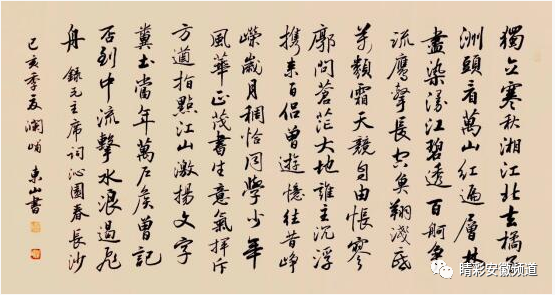 獨立寒秋湘江北去橘子
洲頭看萬山紅遍層林
盡染漫江碧透百舸爭
流鷹擊長空魚翔淺底
萬類霜天競自由悵寥
廓問蒼茫大地誰主沉浮
携來百侣曾遊憶往昔崢
嶸歲月稠恰同學少年
風華正茂書生意氣揮斥
方遒指點江山激揚文字
糞土當年萬户侯曾記
否到中流擊水浪遏飛
舟 錄毛主席詞沁園春長沙
己亥季夏瀾 東山書
睛彩安徽频道